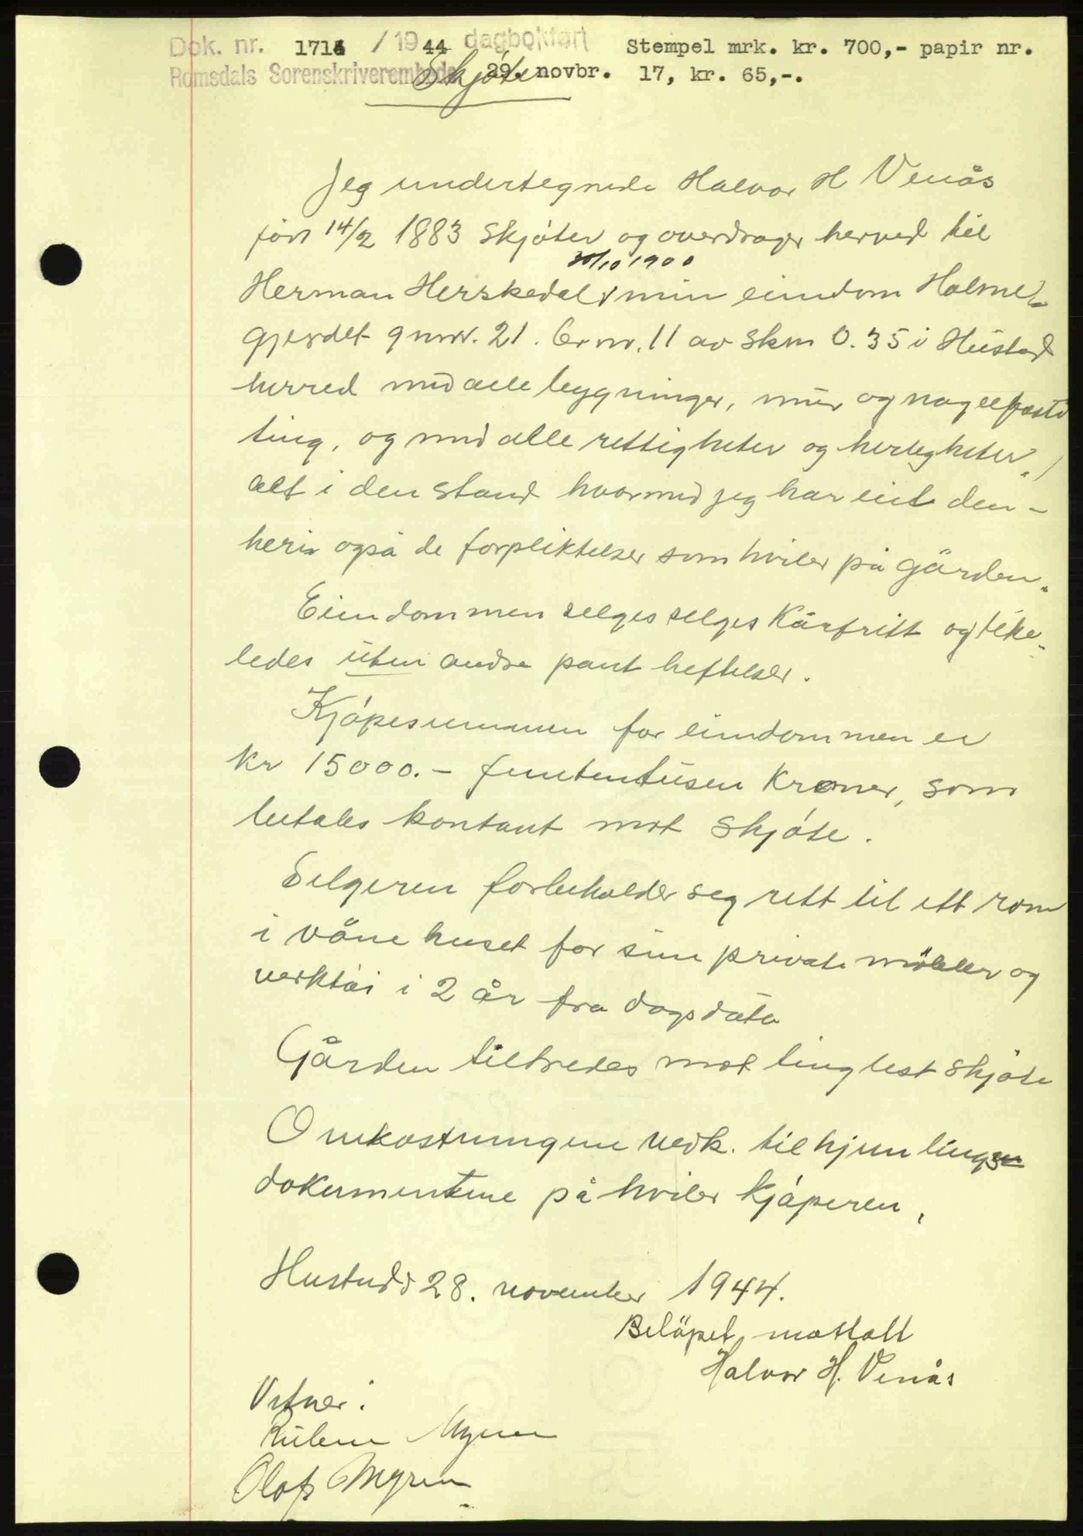 Dok. nr. 1714 / 19 44 dagbokført Stempel mrk. kr. 700,- papir nr.
Romsdals Sorenskriverembede 29. novbr. 17, kr. 65,-.
Skjöte
Jeg undertegnede Halvor H Venås
født 14/2 1883 Skjöter og overdrager herved til
30/10 1900
Herman Herskedal min eiendom Holme-
gjerdet gnrr. 21. Br nr. 11 av Skm 0.35 i Hustad
herred med alle bygninger, mur og nagelfaste
ting, og med alle rettigheter og herligheter.
alt i den stand hvormed jeg har eiet den -
heri også de forpliktelser som hviler på gården.
Eiendommen selges selges Kårfritt og like-
ledes uten andre pant heftelser.
Kjöpesummen for eiendommen er
kr 15000.- femtentusen Kroner, som
betales kontant mot Skjöte.
Selgeren forbeholder seg rett til ett rom
i våne huset for sine private möbler og
verktöi i 2 år fra dags dato
Gården tiltredes mot tinglest Skjöte
Omkostningene vedk. til hjemlings
dokumentene på hviler kjöperen,
Hustad 28. november 1944.
Belöpet mottatt
Halvor H. Venås
Vitner:
Myren
Olaf Myren